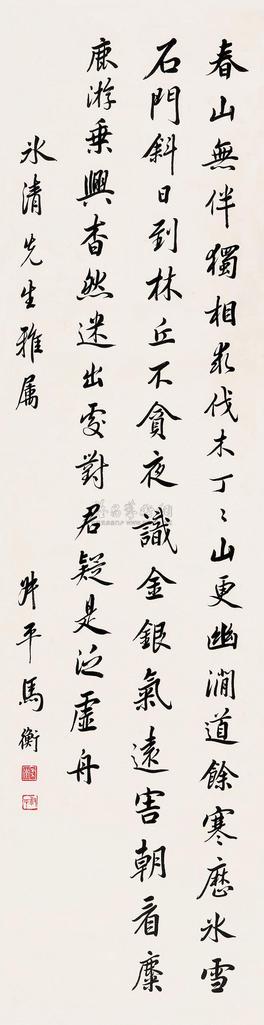 春山無伴獨相求伐木丁〻山更幽澗道餘寒歷冰雪
石門斜日到林丘不貪夜識金銀氣遠害朝看麋
鹿游乗興杳然迷出處對君疑是泛虛舟
冰清先生雅属
叔平馬衡